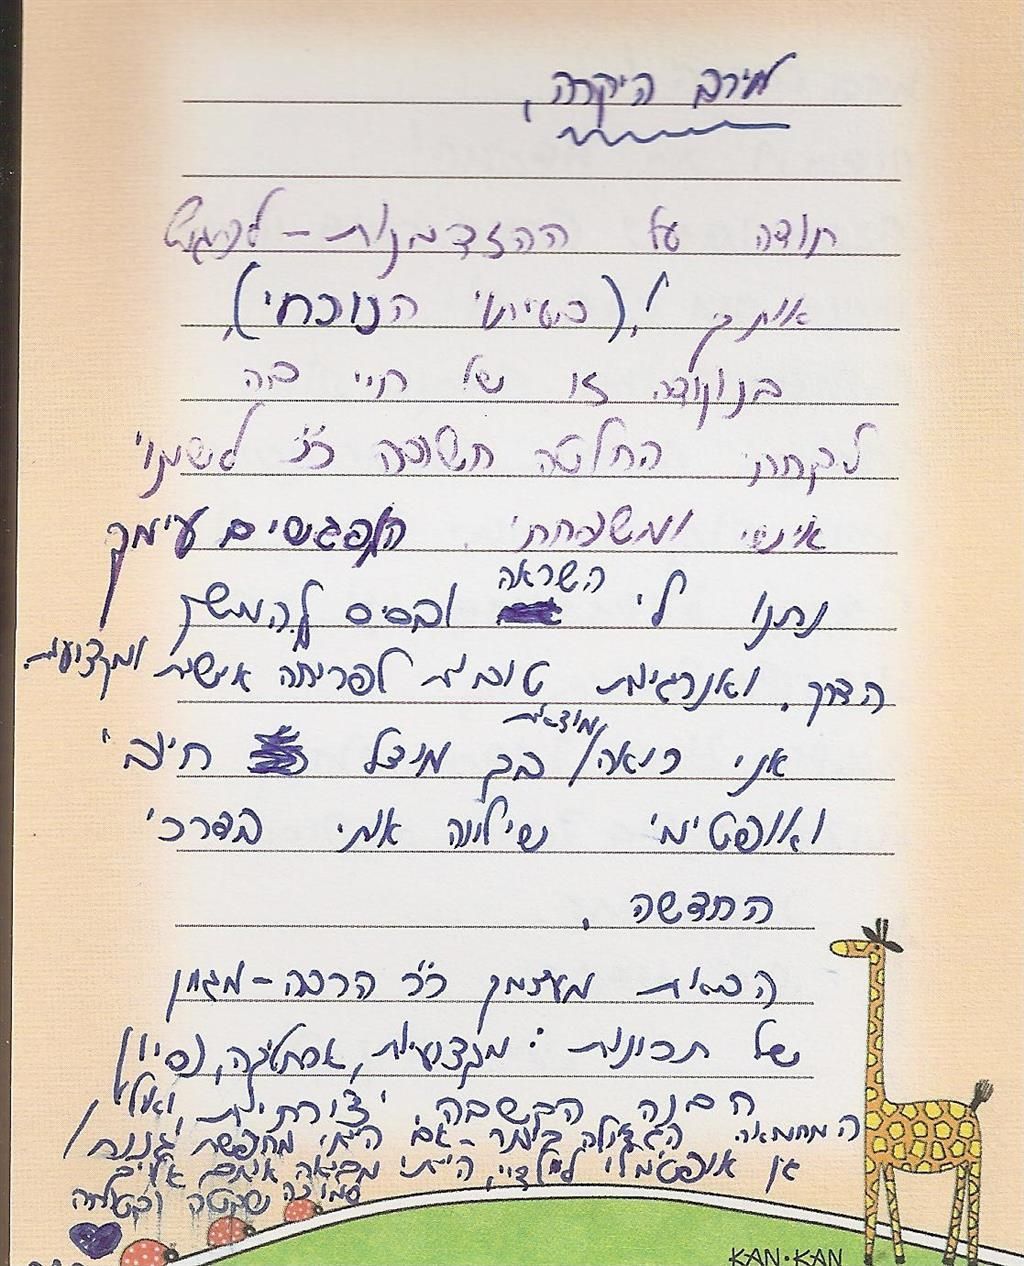 מירב היקרה,
תודה על ההזדמנות - לפגוש
אותך! (בעיתוי הנוכחי),
בנקודה זו של חיי בה
לקחתי החלטה חשובה כ"כ לשינוי
אישי ומשפחתי. המפגשים עימך
נתנו לי השראה ובסיס להמשך
הדרך, ואנרגיות טובות לפריחה אישית ומקצועית.
אני רואה/מוצאת בכך מודל חיובי
ואופטימי שילווה אותי בדרכי
החדשה.
הבאת מעצמך כ"כ הרבה - מגוון
של תכונות: מקצועיות, אסתטיקה, נסיון
הבנה הקשבה, יצירתיות, ואולי
המחמאה הגדולה ביותר - אם הייתי מחפשת גננת/
גן אופטימלי לילדיי, הייתי מביאה אותם אלייך
בשקט ובטוחה
KAN·KAN